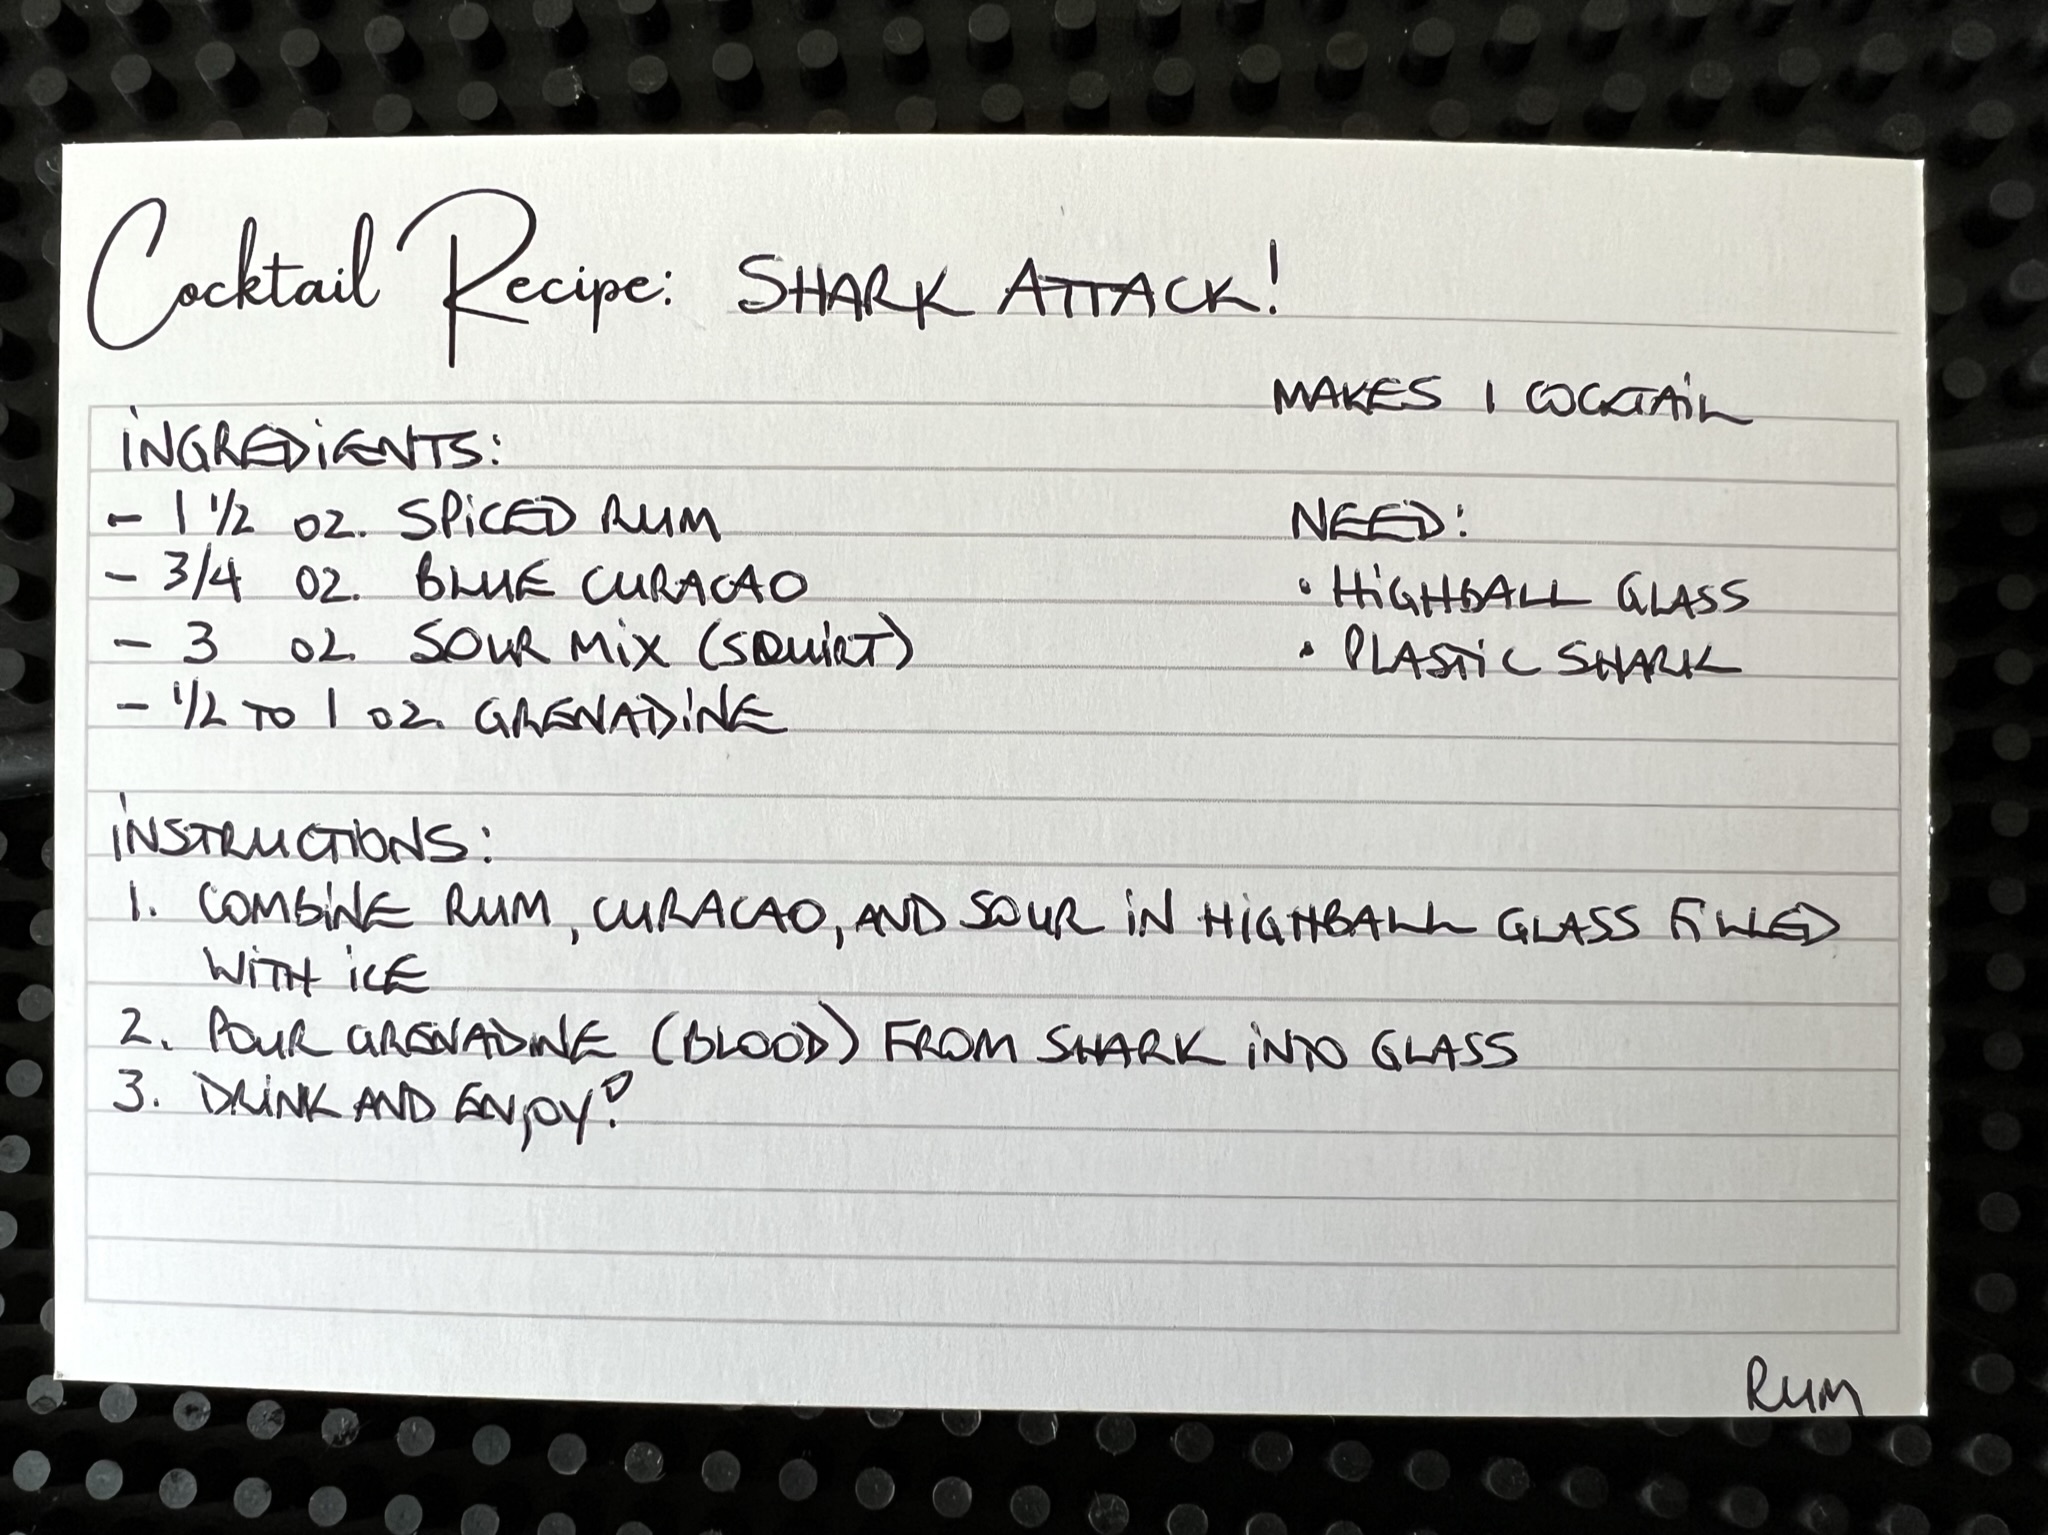 Cocktail Recipe: SHARK ATTACK!
MAKES 1 COCKTAIL
INGREDIENTS:
- 1 1/2 OZ. SPICED RUM
- 3/4 OZ. BLUE CURACAO
- 3 OZ. SOUR MIX (SQUIRT)
- 1/2 TO 1 OZ. GRENADINE
NEED:
• HIGHBALL GLASS
• PLASTIC SHARK
INSTRUCTIONS:
1. COMBINE RUM, CURACAO, AND SOUR IN HIGHBALL GLASS FILLED
WITH ICE
2. POUR GRENADINE (BLOOD) FROM SHARK INTO GLASS
3. DRINK AND ENJOY!
RUM